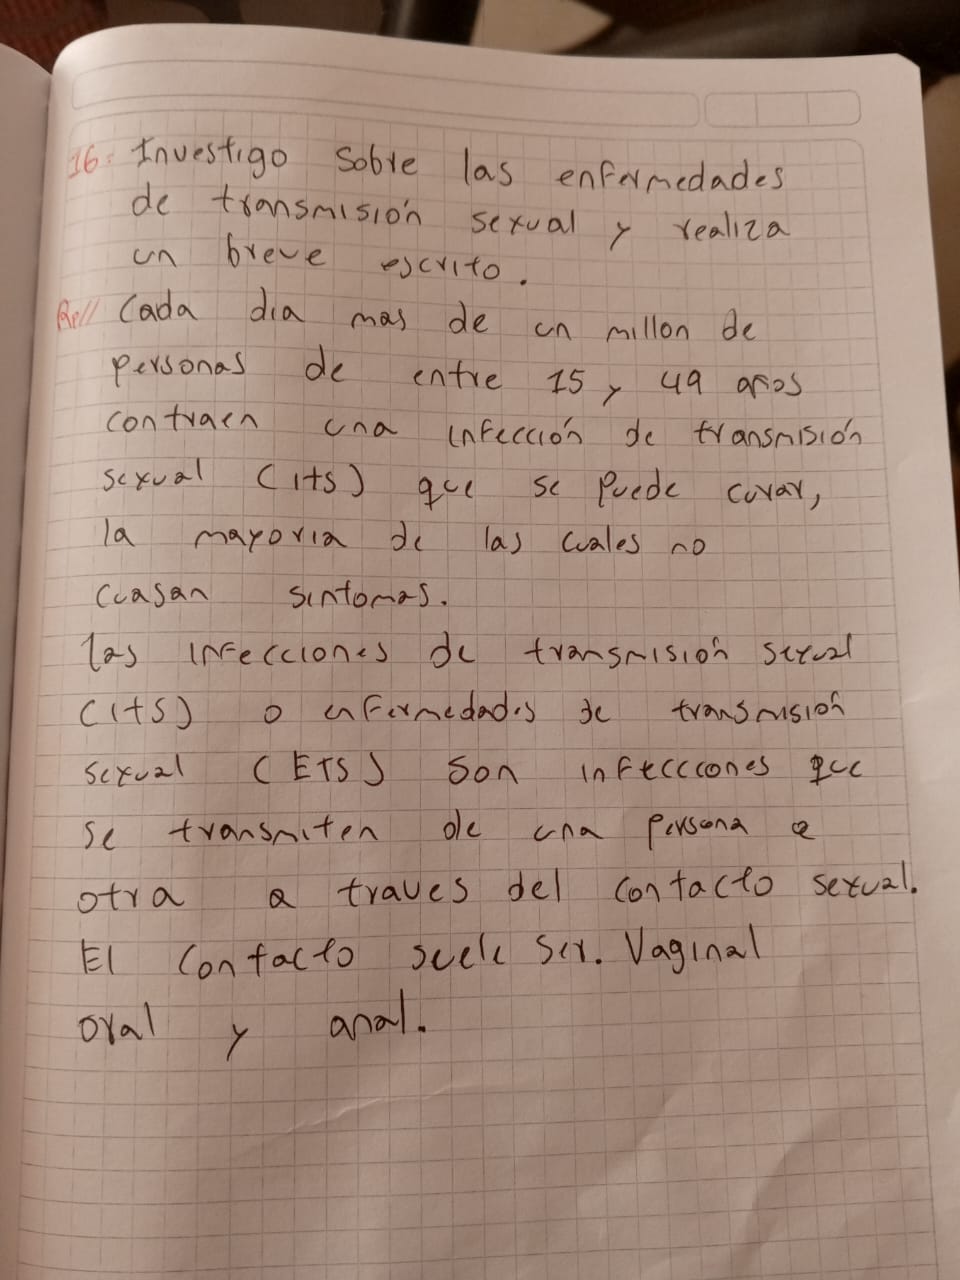 16: Investigo sobre las enfermedades
de transmisión sexual y realiza
un breve escrito.
Re// Cada dia mas de un millon de
personas de entre 15 y 49 años
contraen una infección de transmisión
sexual (its) que se puede curar,
la mayoria de las cuales no
cuasan sintomas.
las infecciones de transmisión sexual
(its) o enfermedades de transmisión
sexual (ETS) son infecciones que
se transmiten de una persona a
otra a traves del contacto sexual.
El contacto suele ser. Vaginal
oral y anal.